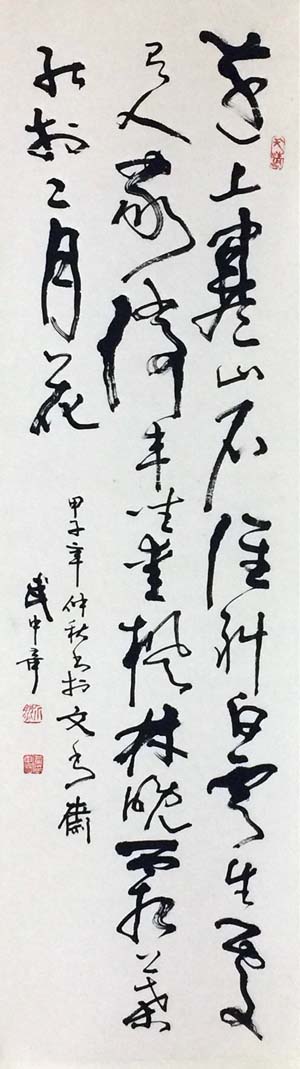 遠上寒山石徑斜白雲生處
有人家停車坐愛楓林晚霜葉
紅於二月花
甲子年仲秋書於文齋
武中奇